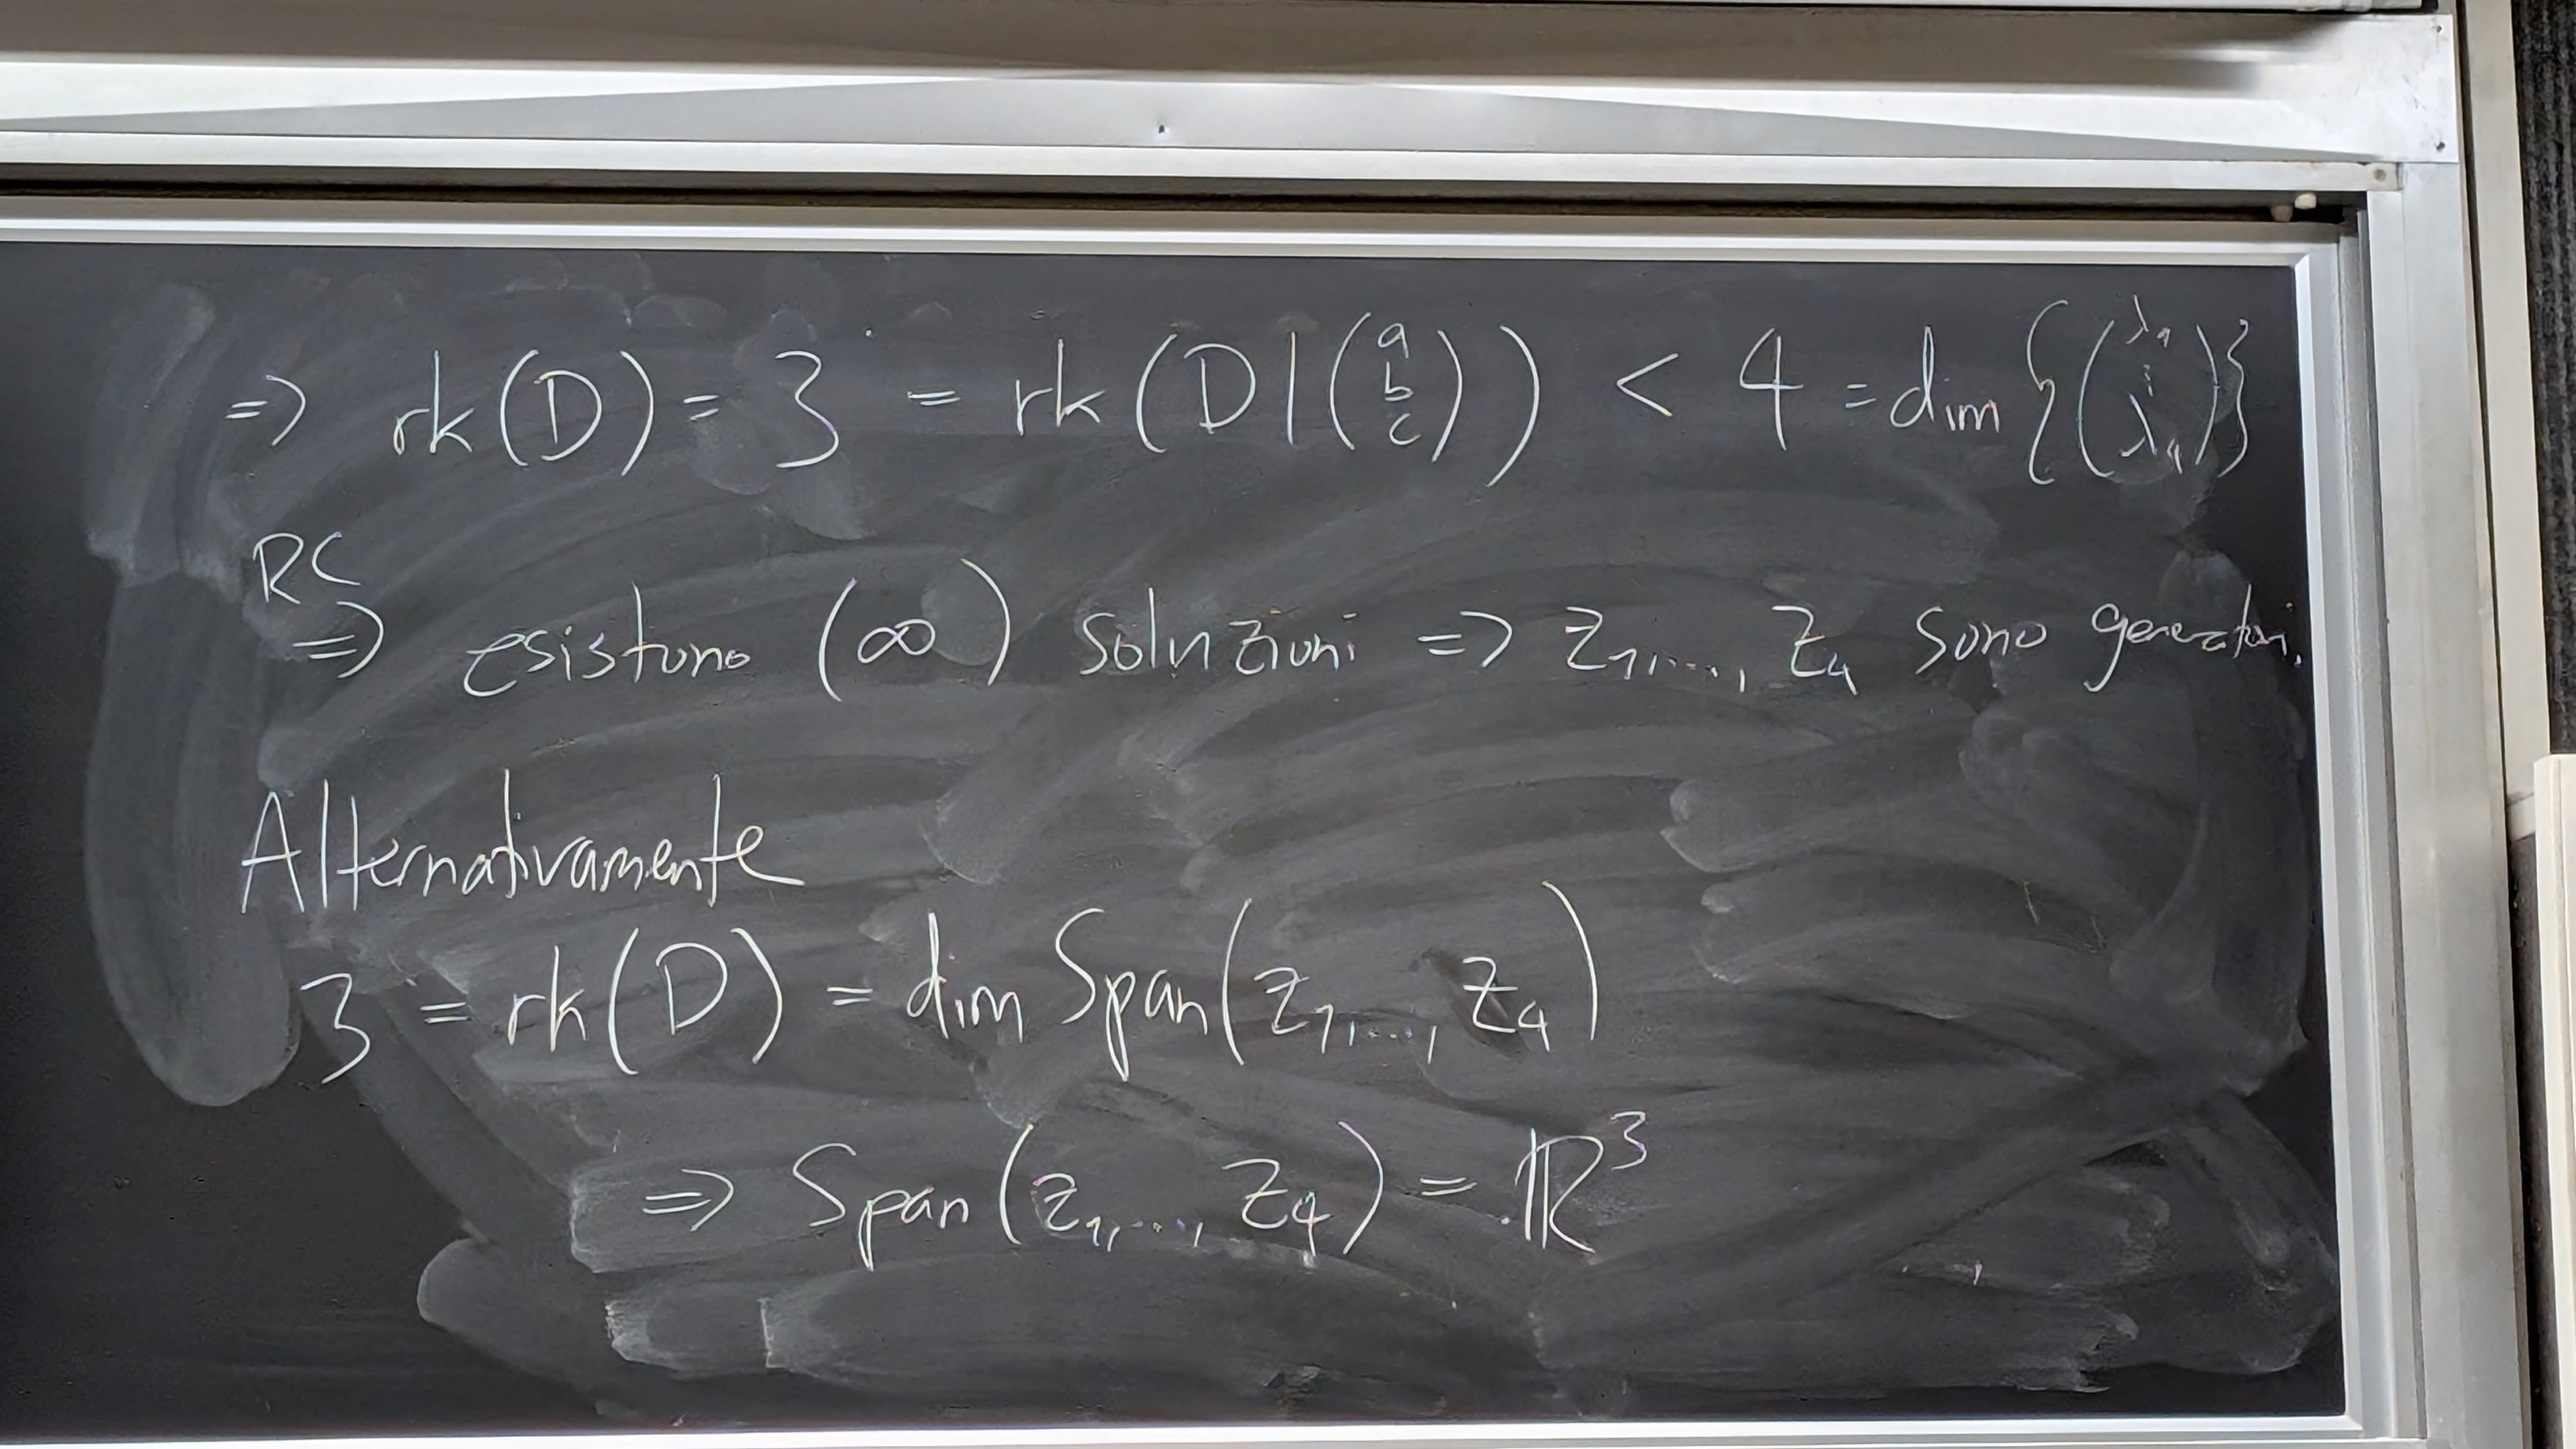 => rk(D) = 3 = rk(D|(a b c)) < 4 = dim{(λ₁ ⋮ λ₄)}
RC => esistono (∞) soluzioni => z₁,..., z₄ sono generatori.
Alternativamente
3 = rk(D) = dim Span(z₁,..., z₄)
=> Span(z₁,..., z₄) = ℝ³